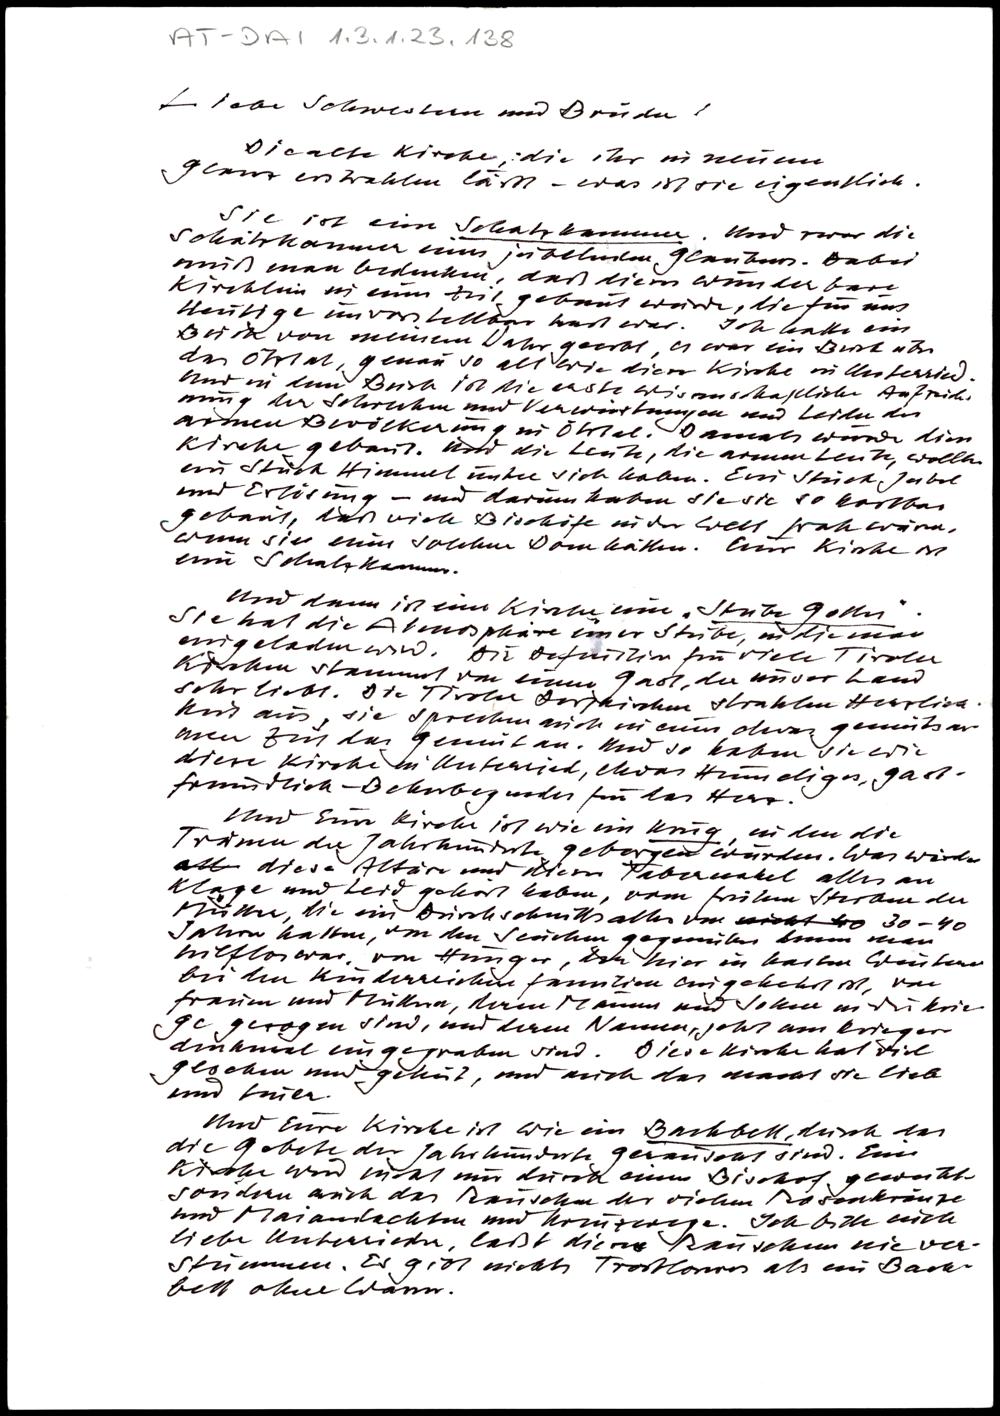 AT-DAI 1.3.1.23.138
Liebe Schwestern und Brüder!
Die alte Kirche, die ihr in neuem
Glanz erstrahlen läßt – was ist sie eigentlich.
Sie ist eine Schatzkammer. Und zwar die
Schatzkammer eines jubelnden Glaubens. Dabei
muß man bedenken, daß dieses wunderbare
Kirchlein in einer Zeit gebaut wurde, die für uns
Heutige unvorstellbar hart war. Ich habe ein
Buch von meinem Vater geerbt, es war ein Buch über
das Ötztal, genau so alt wie diese Kirche in Unterried.
Und in dem Buch ist die erste wissenschaftliche Aufzeich-
nung der Schrecken und Verwüstungen und Leiden der
armen Bevölkerung im Ötztal. Damals wurde diese
Kirche gebaut. Und die Leute, die armen Leute, wollten
ein Stück Himmel unter sich haben. Ein Stück Jubel
und Erlösung – und darum haben sie sie so kostbar
gebaut, daß viele Bischöfe in der Welt froh wären,
wenn sie einen solchen Dom hätten. Eure Kirche ist
eine Schatzkammer.
Und dann ist eine Kirche eine „Stube Gottes“.
Sie hat die Atmosphäre einer Stube, in die man
eingeladen wird. Die Definition für viele Tiroler
Kirchen stammt von einem Gast, der unser Land
sehr liebt. Die Tiroler Dorfkirchen strahlen Herrlich-
keit aus, sie sprechen auch in einer etwas gemütsar-
men Zeit das Gemüt an. Und so haben sie wie
diese Kirche in Unterried, etwas Heimeliges, gast-
freundlich-Beherbergendes für das Herz.
Und Eure Kirche ist wie ein Krug, in den die
Tränen der Jahrhunderte geborgen wurden. Was würde
all diese Altäre und dieser Tabernakel alles an
Klage und Leid gehört haben, vom frühen Sterben der
Mütter, die ein Durchschnittsalter von nicht 40 30–40
Jahren hatten, von den Seuchen gegenüber denen man
hilflos war, von Hunger, der hier in harten Wintern
bei den kinderreichen Familien eingekehrt ist, von
Frauen und Müttern, deren Männer und Söhne in die Krie-
ge gezogen sind, und deren Namen, jetzt am Krieger-
denkmal eingegraben sind. Diese Kirche hat viel
gesehen und gehört, und auch das macht sie lieb
und teuer.
Und Eure Kirche ist wie ein Bachbett, durch das
die Gebete der Jahrhunderte gerauscht sind. Eine
Kirche wird nicht nur durch einen Bischof geweiht-
sondern auch das Rauschen der vielen Rosenkränze
und Maiandachten und Kreuzwege. Ich bitte euch
liebe Unterrieder, laßt dieses Rauschen nie ver-
stummen. Es gibt nichts Trostloseres als ein Bach-
bett ohne Wasser.